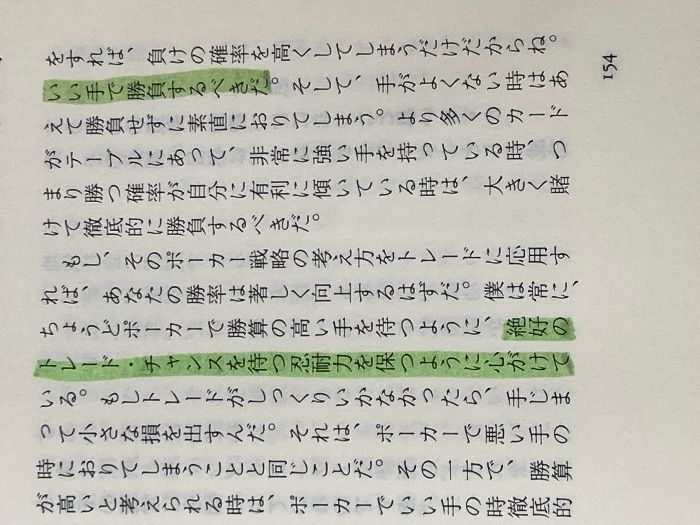 154
をすれば、負けの確率を高くしてしまうだけだからね。
いい手で勝負するべきだ。そして、手がよくない時はあ
えて勝負せずに素直におりてしまう。より多くのカード
がテーブルにあって、非常に強い手を持っている時、つ
まり勝つ確率が自分に有利に傾いている時は、大きく賭
けて徹底的に勝負するべきだ。
もし、そのポーカー戦略の考え方をトレードに応用す
れば、あなたの勝率は著しく向上するはずだ。僕は常に、
ちょうどポーカーで勝算の高い手を待つように、絶好の
トレード・チャンスを待つ忍耐力を保つように心がけて
いる。もしトレードがしっくりいかなかったら、手じま
って小さな損を出すんだ。それは、ポーカーで悪い手の
時におりてしまうことと同じことだ。その一方で、勝算
が高いと考えられる時は、ポーカーでいい手の時徹底的